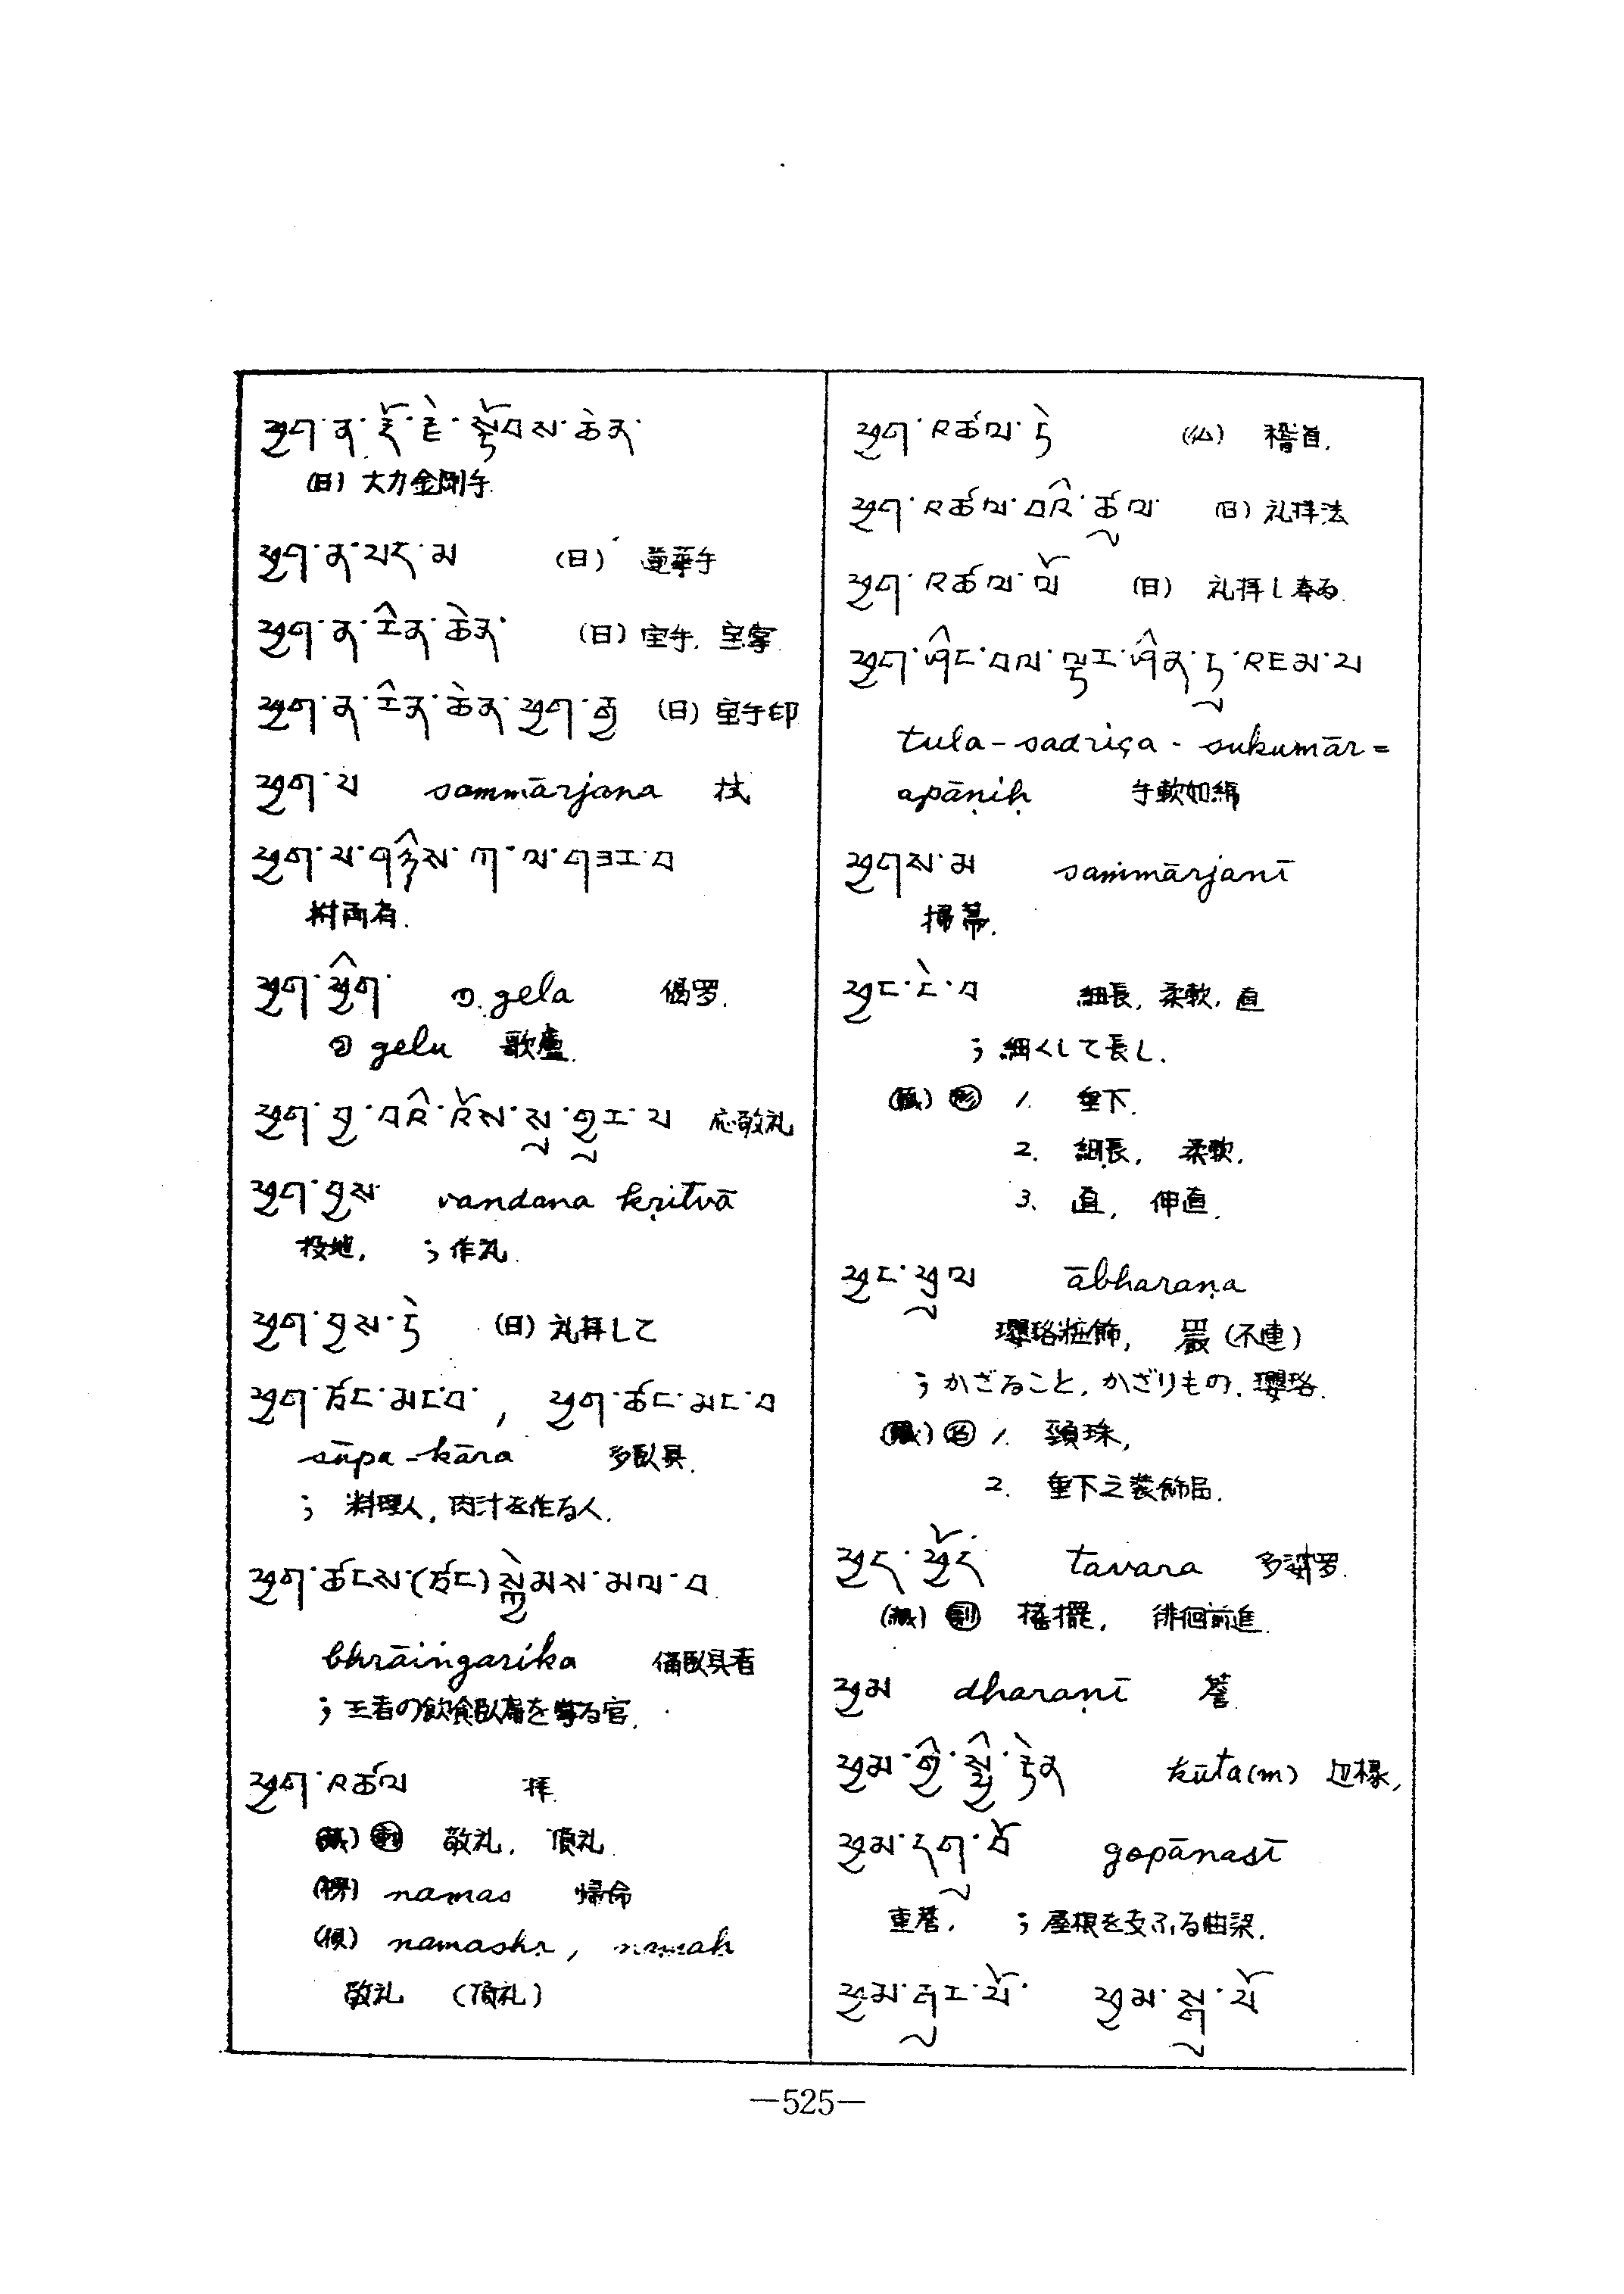 ཕྱག་ན་རྡོ་རྗེ་སྟོབས་ཆེན་
(日) 大力金剛手.
ཕྱག་ན་པད་མ (日) 蓮華手
ཕྱག་ན་རིན་ཆེན་ (日) 宝手. 宝掌.
ཕྱག་ན་རིན་ཆེན་ཕྱག་རྒྱ (日) 宝手印
ཕྱག་པ sammārjana 拭
ཕྱག་པ་གཉིས་ཀ་ལ་གཟར་བ
樹両肩.
ཕྱག་ཕྱིག་ ①. gela 偈罗.
② gelu 歌蘆.
ཕྱག་བྱ་བའི་འོས་སུ་གྱུར་པ 応敬礼
ཕྱག་བྱས་ vandana kṛitvā
投地, ; 作礼.
ཕྱག་བྱས་ཏེ (日) 礼拜して
ཕྱག་ཚང་མང་བ་, ཕྱག་ཚང་མང་བ
sūpa-kāra 多臥具.
; 料理人, 肉汁を作る人.
ཕྱག་ཚངས་(ཚང)སྐྱེམས་མལ་བ.
bhrāiṅgarika 備臥具者
; 王者の飲食臥褥を掌る官.
ཕྱག་འཚལ 拝.
(蔵) 動 敬礼, 頂礼.
(榊) namas 帰命
(倶) namaskṛ, namaḥ
敬礼 (頂礼)
ཕྱག་འཚལ་ཏེ (仏) 稽首.
ཕྱག་འཚལ་བའི་ཚུལ་ (日) 礼拝法
ཕྱག་འཚལ་ལོ (日) 礼拝し奉る.
ཕྱག་ཤིང་བལ་ལྟར་ཤིན་ཏུ་འཇམ་པ
tula-sadṛiça-sukumār=
apāṇiḥ 手軟如綿
ཕྱགས་མ saṁmārjanī
掃箒.
ཕྱང་ངེ་བ 細長, 柔軟, 直
; 細くして長し.
(蔵) 形 1. 垂下.
2. 細長, 柔軟.
3. 直, 伸直.
ཕྱང་ཕྲུལ ābharaṇa
瓔珞粧飾, 嚴 (不連)
; かざること, かざりもの. 瓔珞.
(蔵) 名 1. 頸珠,
2. 垂下之装飾品.
ཕྱད་ཕྱོད tavara 多婆罗.
(蔵) 副 搖擺, 徘徊前進.
ཕྱམ dharaṇī 簷.
ཕྱམ་གྱི་སྤྱི་རྟེན kūṭa(m) 辺椽,
ཕྱམ་དགུ་བོ gopānasī
重簷, ; 屋根を支ふる曲梁.
ཕྱམ་རྟུར་པོ་ ཕྱམ་སྒུ་པོ
—525—